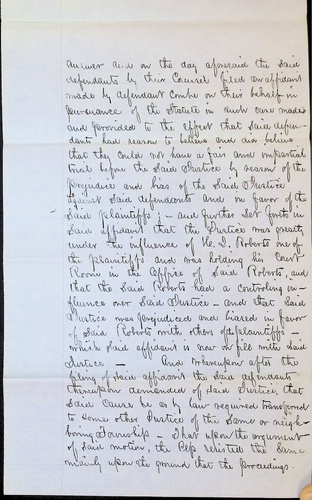 answer and on the day aforesaid the said
defendants by their Counsel filed an affidavit
made by defendant Combe on their behalf in
pursuance of the Statute in such case made
and provided to the effect that said defen-
dants had reason to believe and did believe
that they could not have a fair and impartial
trial before the said Justice by reason of the
prejudice and bias of the said Justice
against said defendants and in favor of the
said plaintiffs; and further set forth in
said affidavit that the Justice was greatly
under the influence of H. L. Roberts one of
the plaintiffs and was holding his Court
Room in the office of said Roberts, and
that the said Roberts had a controling in-
fluence over said Justice - and that said
Justice was prejudiced and biased in favor
of said Roberts with others of plaintiffs -
which said affidavit is now on file with said
Justice - And thereupon after the
filing of said affidavit the said defendants
thereupon demanded of said Justice, that
said cause be as by law required transferred
to some other Justice of the same or neigh-
boring Township - That upon the argument
of said motion, the resisted the same
mainly upon the ground that the proceedings